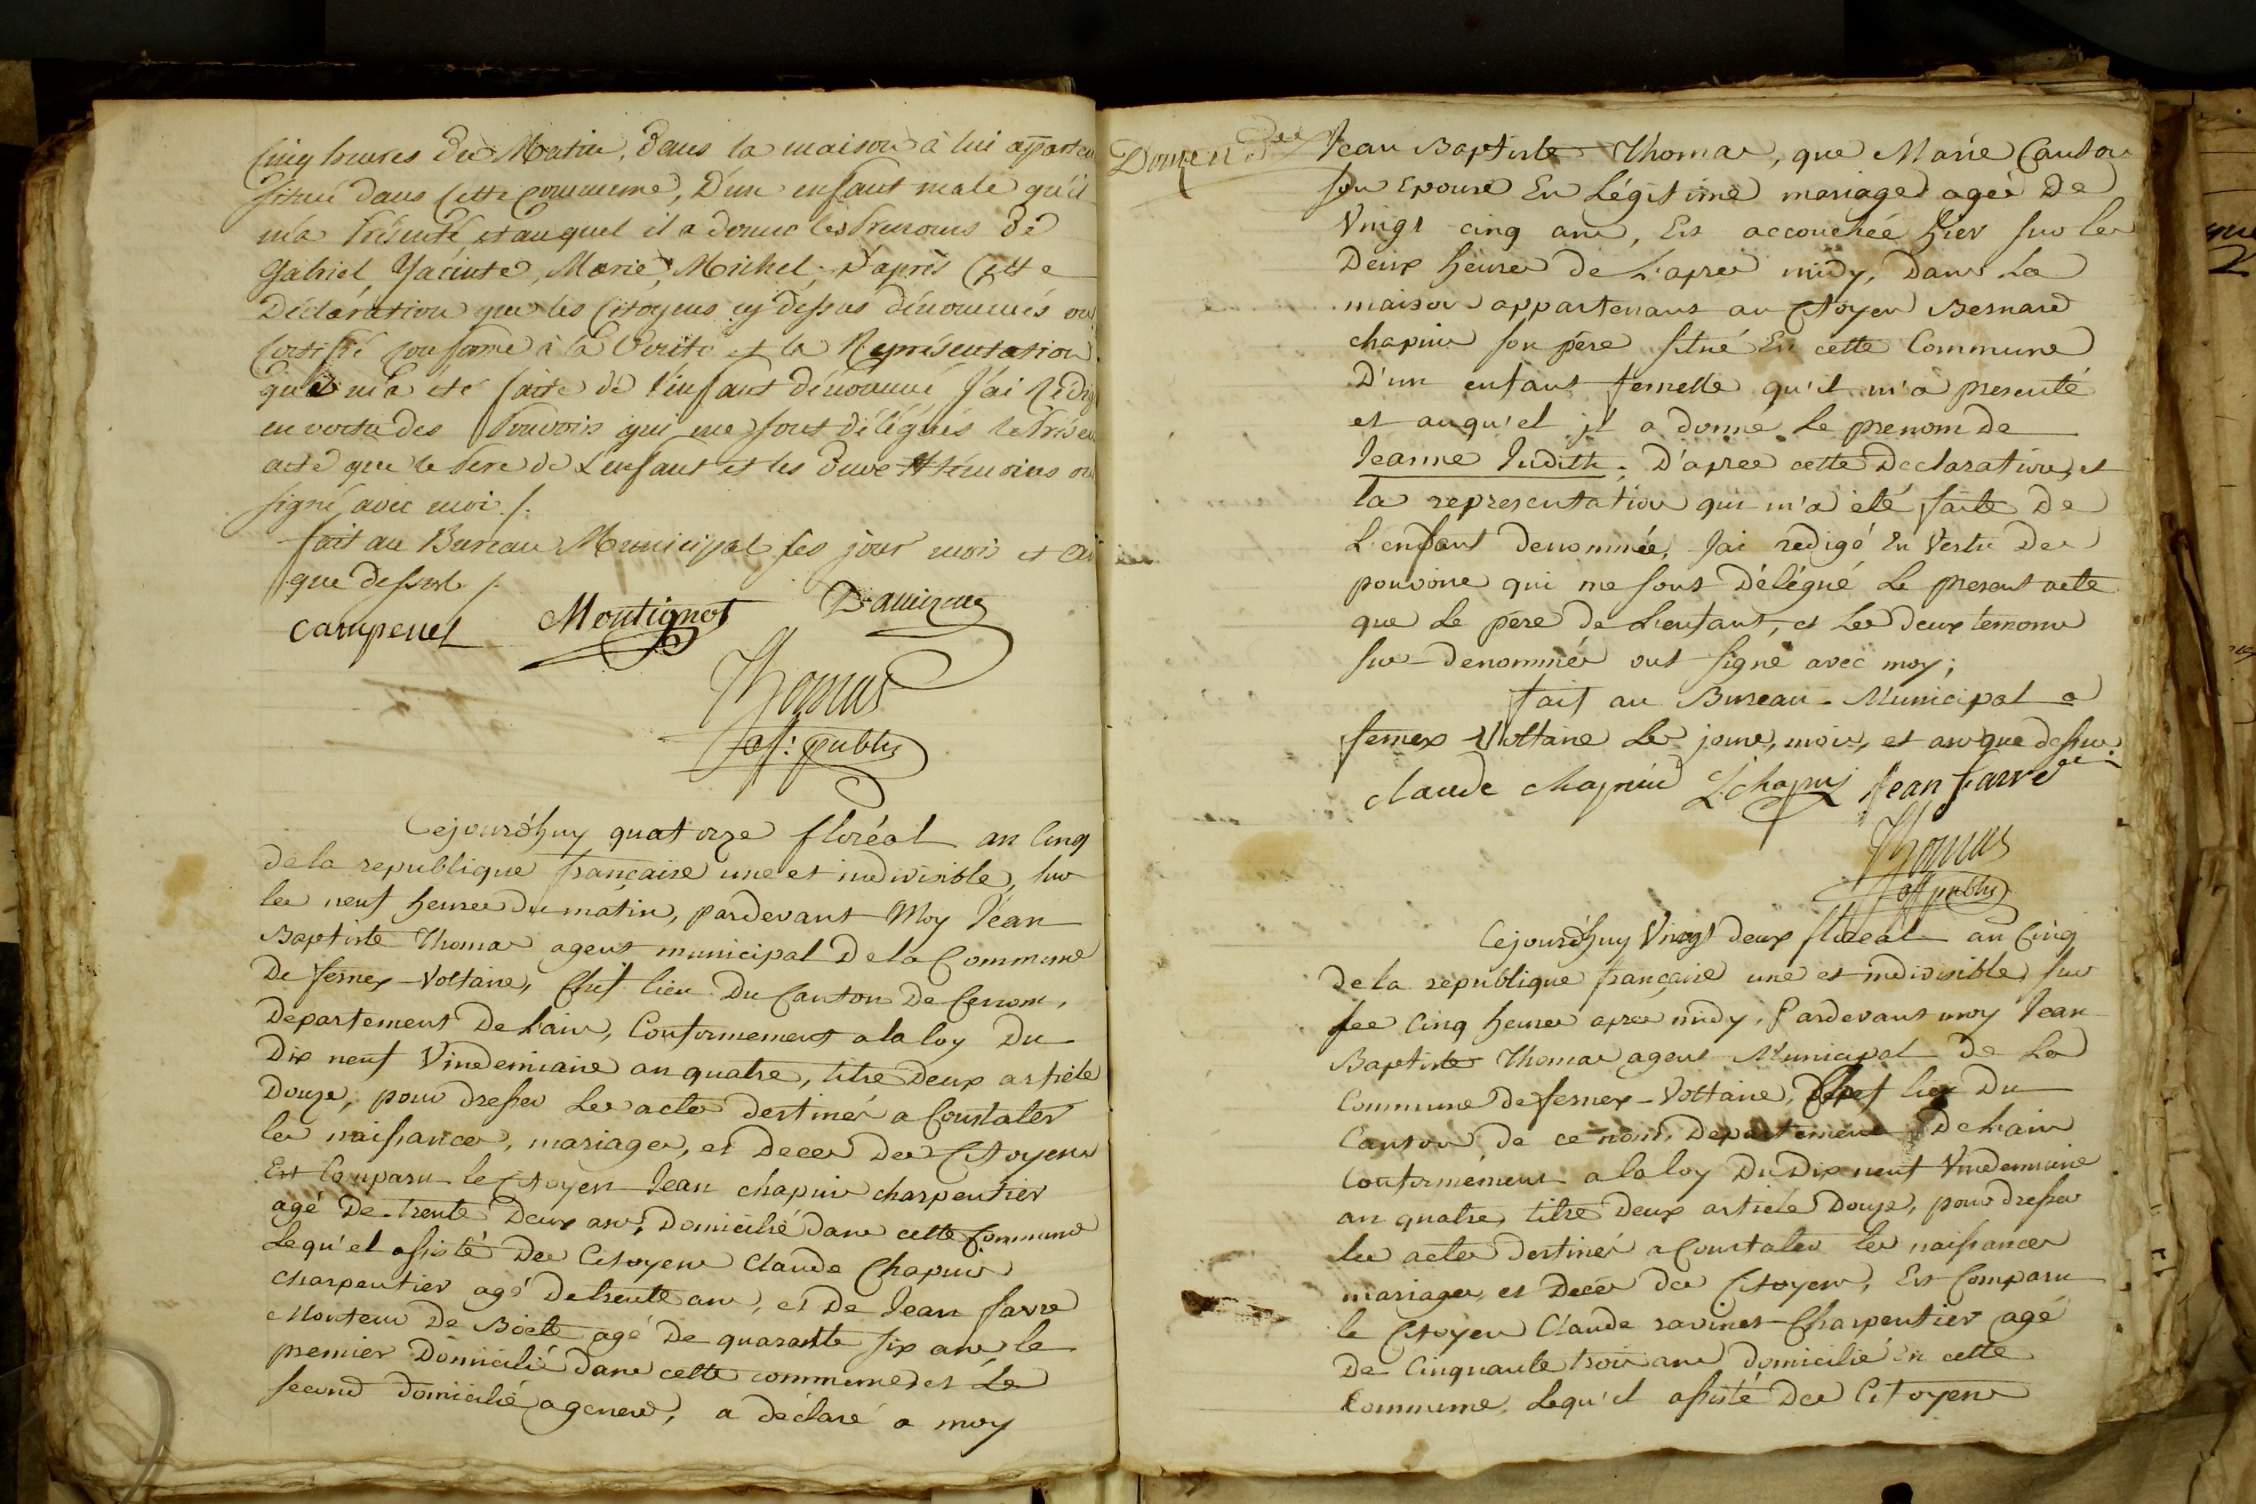 Cinq heures du Matin, dans la maison à lui apparten
située dans cette commune, D'un enfant male qu'il
m'a Présenté et auquel il a donné les Prenoms de
Gabriel, Yacinte, Marie, Michel, D'après Cette
Déclaration que les Citoyens cy dessus dénommés on
Certifié conforme à la Vérité et la Représentation
qui m'a été faite de l'enfant dénommé J'ai Rédig
en vertu des Pouvoirs qui me sont délégués le Présen
acte que le Pere de L'enfant et les deux témoins on
signé avec moi /.
fait au Bureau Municipal les jour mois et an
que dessus /.
Campenet Montignot
Thomas
af: public
Cejourd'huy quatorze floréal an Cinq
de la republique française une et indivisible, sur
les neuf heures du matin, pardevant Moy Jean
Baptiste Thomas agent municipal De la Commune
De fernex-Voltaire, Chef lieu Du Canton De Cenom,
Departement De Lain, Conformement a la loy Du
Dix neuf Vindemiaire an quatre, titre Deux article
Douze, pour dresser Les actes destinés a Constater
les naissances, mariages, et Deces Des Citoyens
Est Comparu le Citoyen Jean chapuis charpentier
agé De trente Deux ans, Domicilié dans cette Commune
Lequ'el assisté Des Citoyens Claude Chapuis
Charpentier agé De trente ans, et De Jean favre
Monteur De Boete agé De quarante six ans le
premier Domicilié dans cette commune et Le
second domicilié a geneve, a déclaré a moy
Jean Baptiste Thomas, que Marie Canton
son Epouse En Légitime mariage agée De
Vingt cinq ans, Est accouchée hier sur les
Deux heures de L'apres midy, Dans La
maison appartenant au Citoyen Bernard
chapuis son père situé En cette Commune
D'un enfant femelle qu'il m'a presenté
et auqu'el il a donné Le prenom de
Jeanne Judith. D'apres cette Declaration, et
la representation qui m'a été faite De
L'enfant denommée, Jai redigé En Vertu Des
pouvoirs qui me sont Délégué Le present acte
que Le père de L'enfant, et Les deux temoins
sus-denommés ont signé avec moy;
fait au Bureau Municipal a
fernex Voltaire Les jour, mois, et an que dessus.
Claude Chapuis J. Chapuis Jean Favre
Thomas
aff public
Cejourd'huy Vingt deux floreal an Cinq
de la republique française une et indivisible sur
les Cinq heures apres midy, Pardevant moy Jean
Baptiste Thomas agent Municipal De La
Commune De fernex-Voltaire, Chef lieu Du
Canton de ce nom, Departement De Lain
Conformément a la loy Du Dix neuf Vindemiaire
an quatre, titre Deux article Douze, pour dresser
les actes destinés a Constater les naissances
mariages, et Deces des Citoyens, Est Comparu
le Citoyen Claude ravinet Charpentier agé
De Cinquante trois ans domicilié En cette
Commune, Lequ'el assisté Des Citoyens